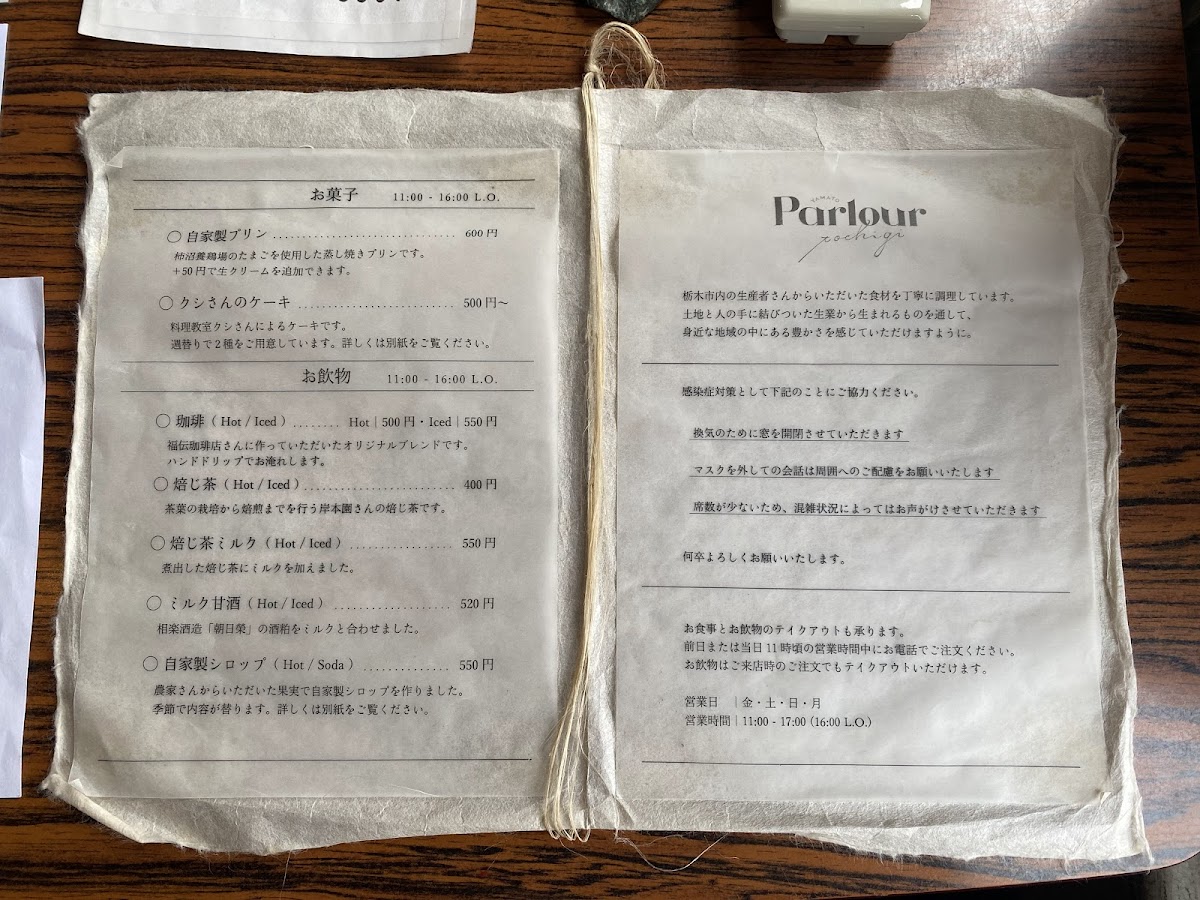 お菓子 11:00 - 16:00 L.O.
〇 自家製プリン .............................. 600円
柿沼養鶏場のたまごを使用した蒸し焼きプリンです。
＋50円で生クリームを追加できます。
〇 クシさんのケーキ ......................... 500円〜
料理教室クシさんによるケーキです。
週替りで2種をご用意しています。詳しくは別紙をご覧ください。
お飲物 11:00 - 16:00 L.O.
〇 珈琲（Hot / Iced）........ Hot｜500円・Iced｜550円
福伝珈琲店さんに作っていただいたオリジナルブレンドです。
ハンドドリップでお淹れします。
〇 焙じ茶（Hot / Iced）......................... 400円
茶葉の栽培から焙煎までを行う岸本園さんの焙じ茶です。
〇 焙じ茶ミルク（Hot / Iced）................. 550円
煮出した焙じ茶にミルクを加えました。
〇 ミルク甘酒（Hot / Iced）................... 520円
相楽酒造「朝日榮」の酒粕をミルクと合わせました。
〇 自家製シロップ（Hot / Soda）.............. 550円
農家さんからいただいた果実で自家製シロップを作りました。
季節で内容が替ります。詳しくは別紙をご覧ください。
YAMATO
Parlour
tochigi
栃木市内の生産者さんからいただいた食材を丁寧に調理しています。
土地と人の手に結びついた生業から生まれるものを通して、
身近な地域の中にある豊かさを感じていただけますように。
感染症対策として下記のことにご協力ください。
換気のために窓を開閉させていただきます
マスクを外しての会話は周囲へのご配慮をお願いいたします
席数が少ないため、混雑状況によってはお声がけさせていただきます
何卒よろしくお願いいたします。
お食事とお飲物のテイクアウトも承ります。
前日または当日11時頃の営業時間中にお電話でご注文ください。
お飲物はご来店時のご注文でもテイクアウトいただけます。
営業日 ｜金・土・日・月
営業時間｜11:00 - 17:00 (16:00 L.O.)